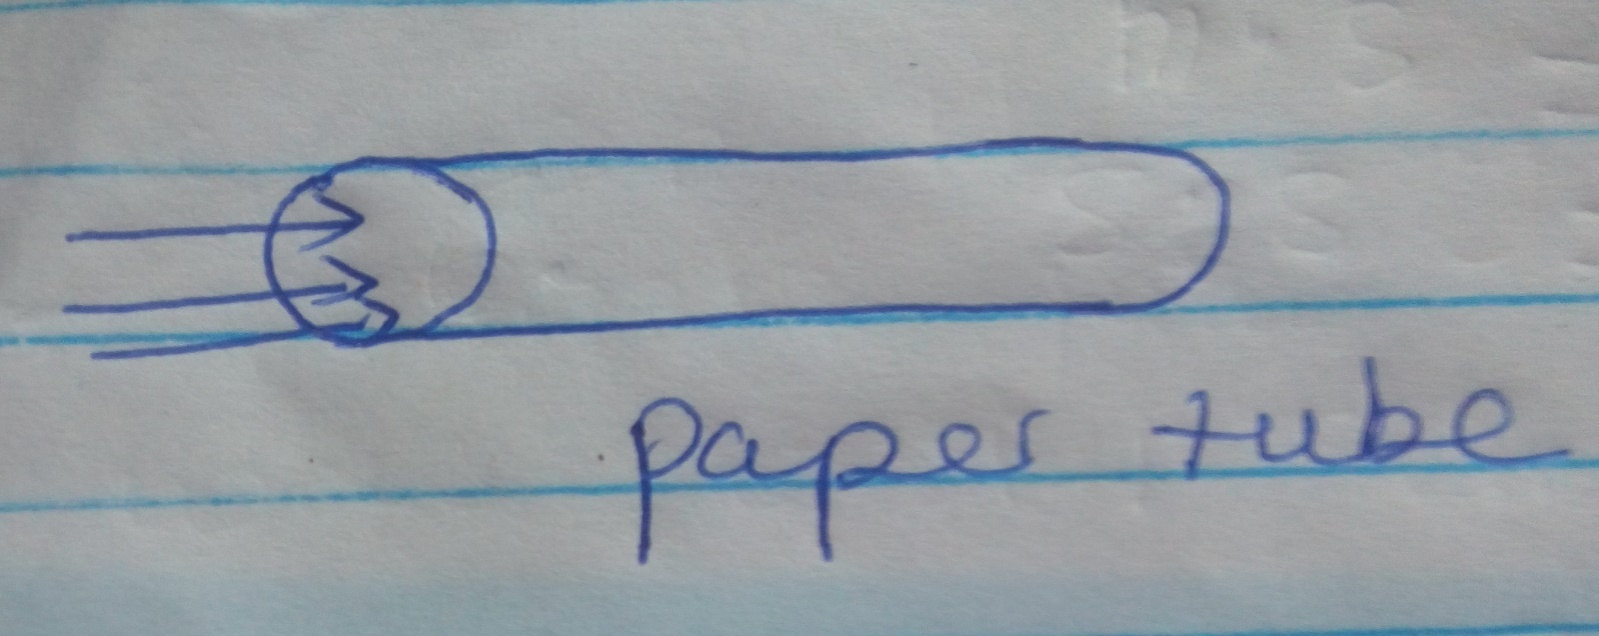 paper tube